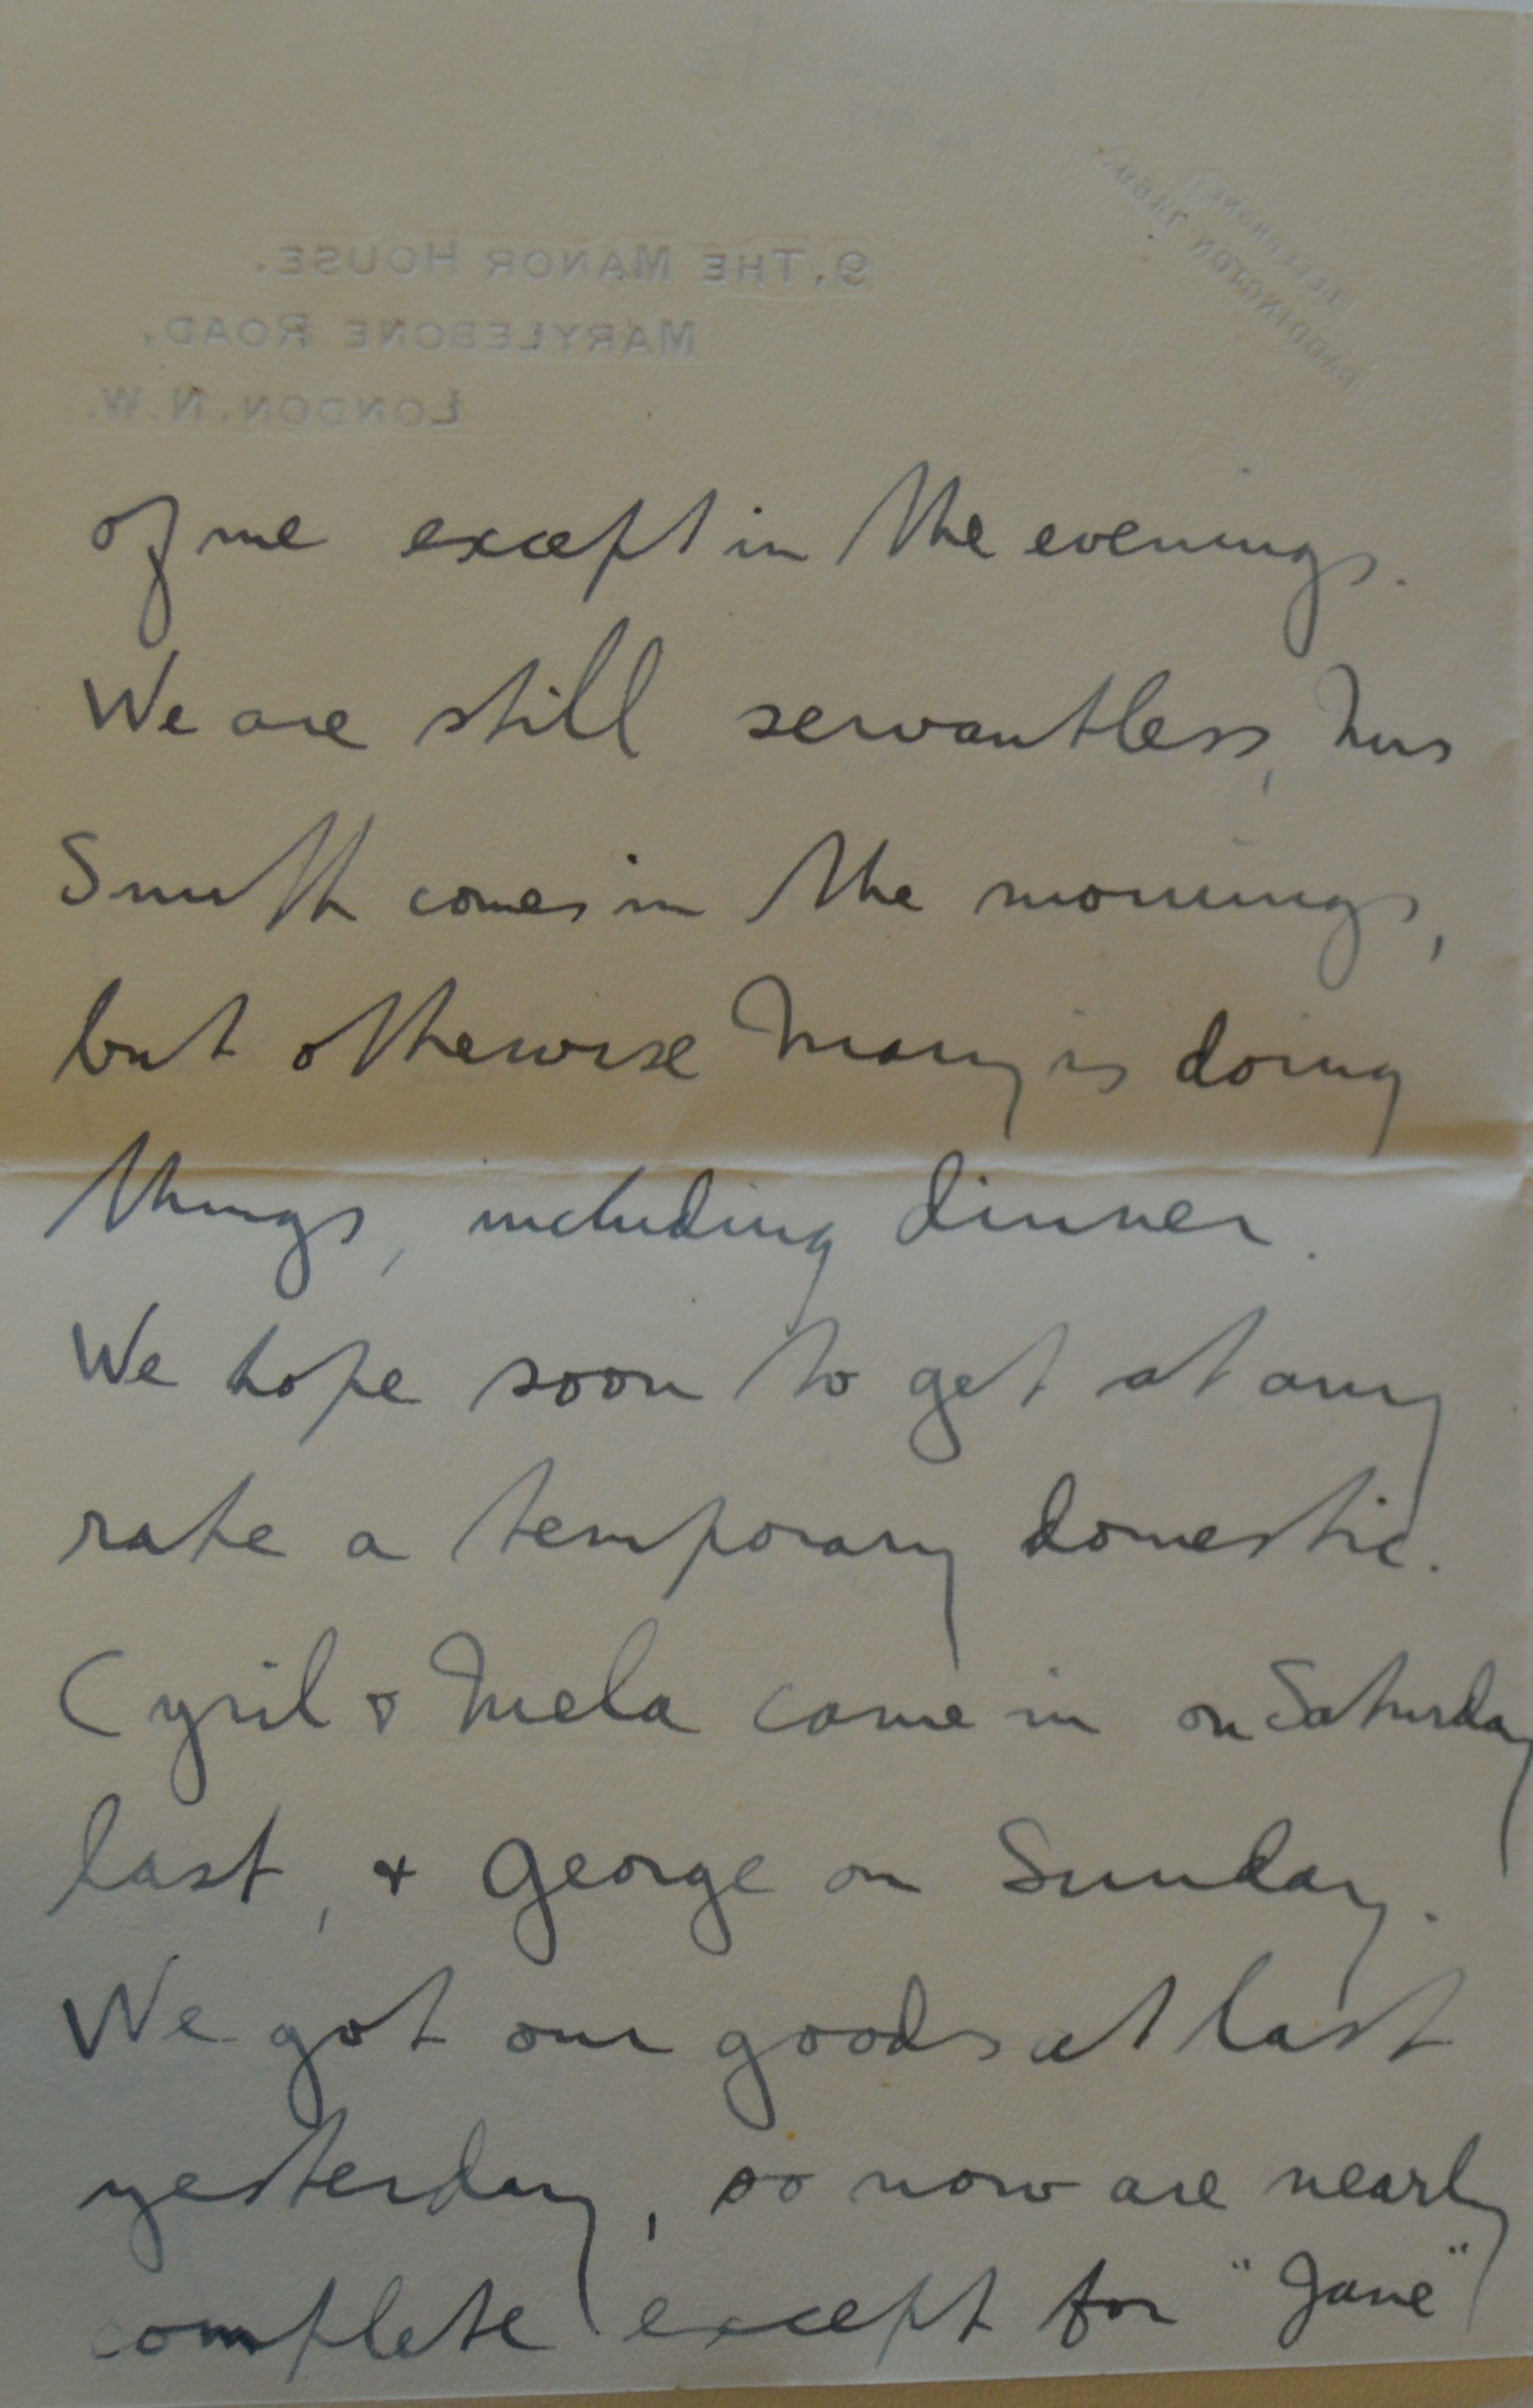 9. THE MANOR HOUSE.
MARYLEBONE ROAD,
LONDON. N.W.
TELEPHONE
PADDINGTON
of me except in the evenings.
We are still servantless, Mrs
Smith comes in the mornings,
but otherwise Mary is doing
things, including dinner.
We hope soon to get at any
rate a temporary domestic.
Cyril & Mela came in on Saturday
last, & George on Sunday.
We got our goods at last
yesterday, so now are nearly
complete except for "Jane"